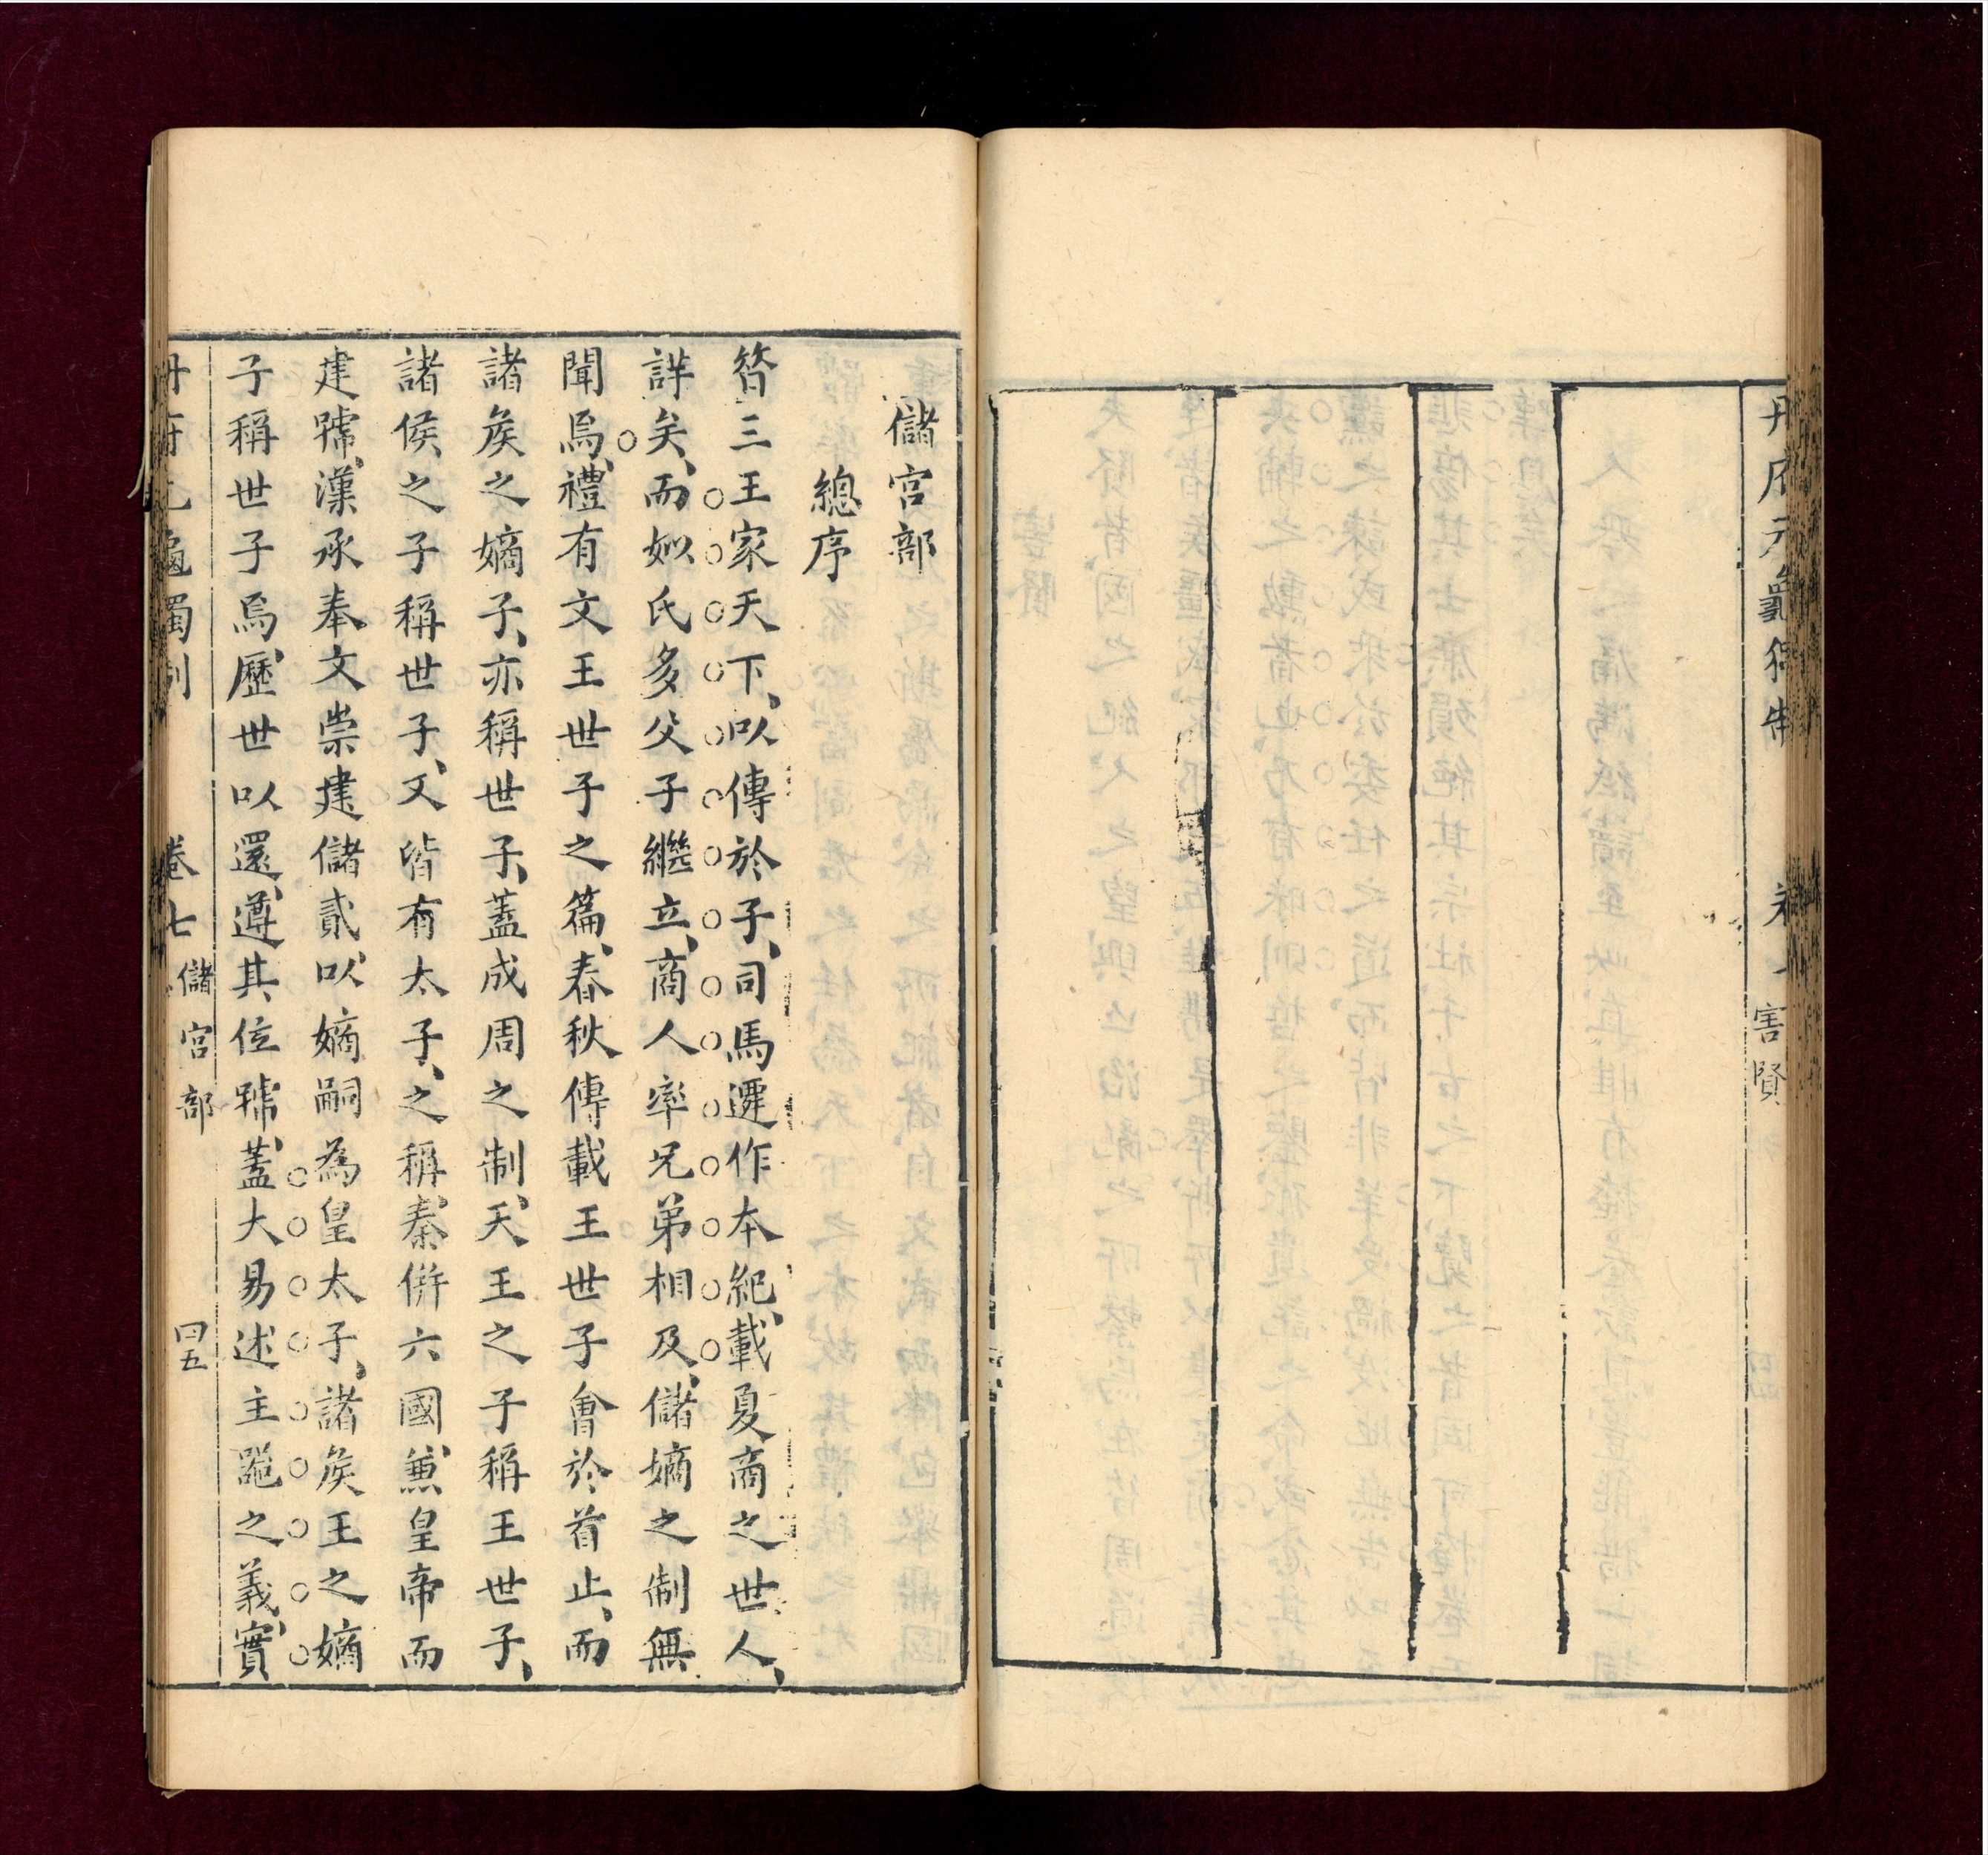 冊府元龜獨制
卷七
害賢
儲宮部
總序
昝三王家天下、以傳於子、司馬遷作本紀、載夏商之世、人、
詳矣、而姒氏多父子繼立、商人率兄弟相及、儲嫡之制無
聞焉、禮有文王世子之篇、春秋傳載王世子會於首止、而
諸矦之嫡子、亦稱世子、蓋成周之制、天王之子稱王世子、
諸侯之子稱世子、又皆有太子、之稱、秦併六國、兼皇帝而
建號、漢承奉文崇建儲貳、以嫡嗣為皇太子、諸矦王之嫡
子稱世子焉、歷世以還、遵其位號、蓋大易述主器之義、實
冊府元龜獨制
卷七
儲宮部
四五